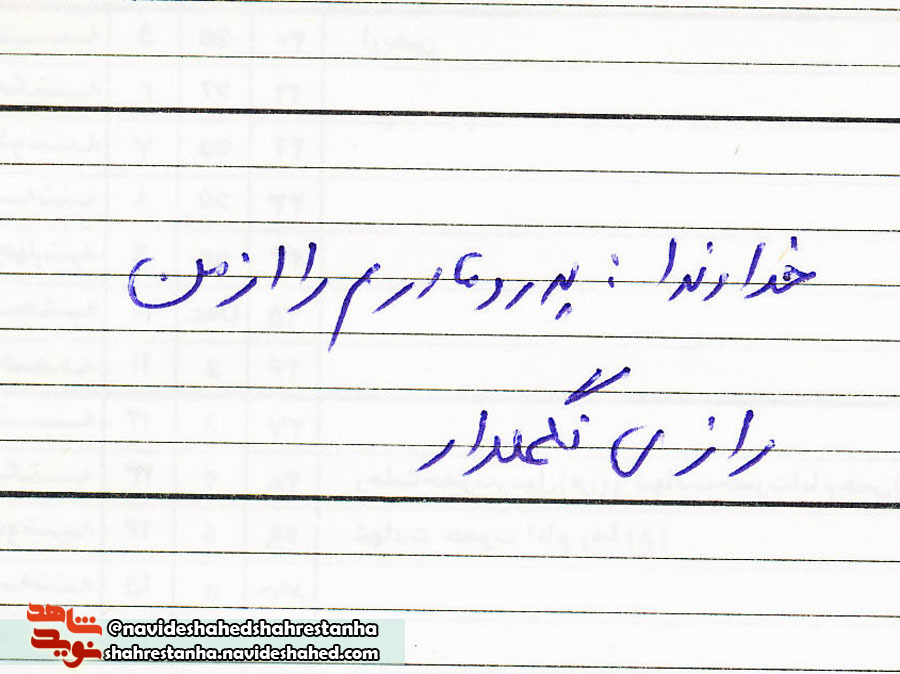 خداوندا : پدر و مادرم را از من
راضی نگهدار
شاهد
نوید
@navideshahedshahrestanha
shahrestanha.navideshahed.com